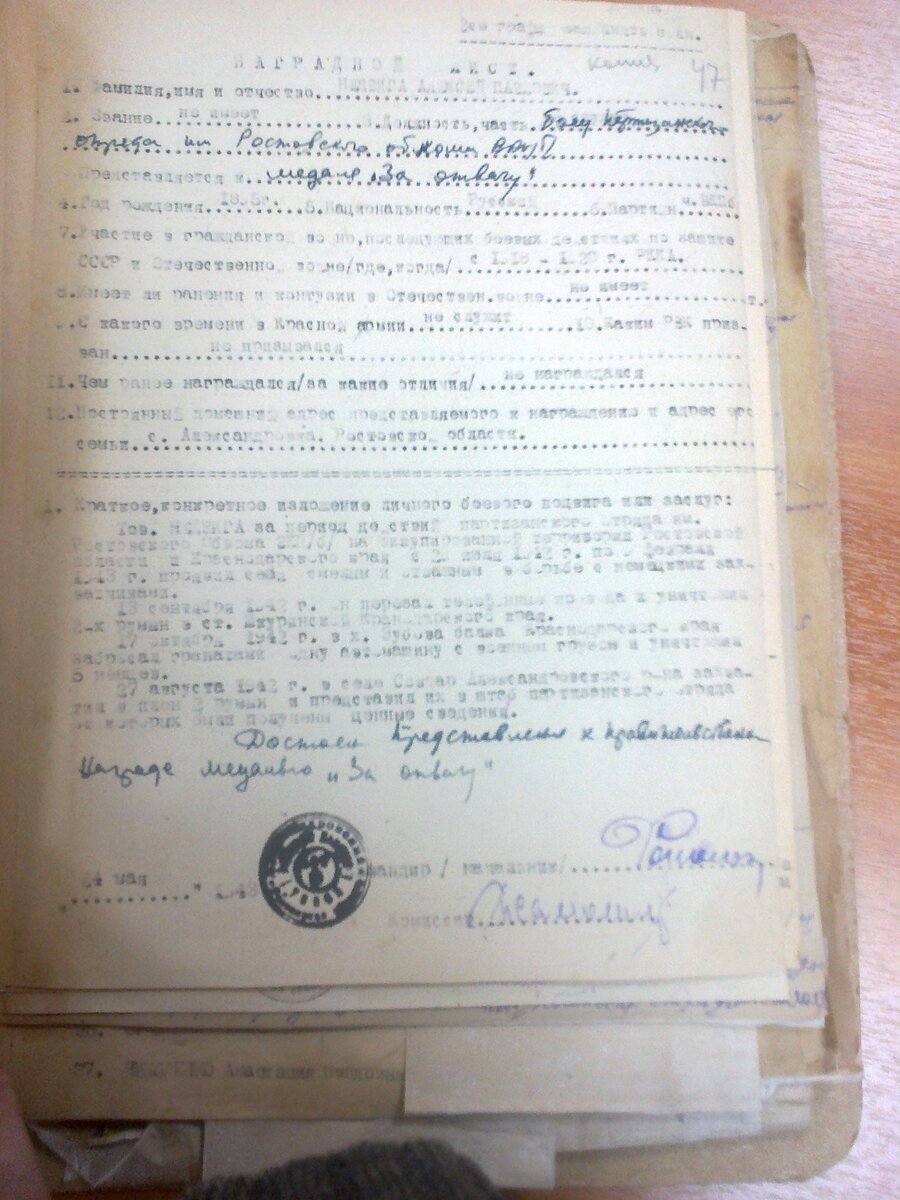 Все графы заполнять
копия 47
НАГРАДНОЙ ЛИСТ.
1. Фамилия,имя и отчество.. АЛЕКСЕЙ ПАВЛОВИЧ.
2. Звание.. не имеет 3.Должность,часть. боец партизанского
отряда им Ростовского обкома ВКП/б
Представляется к ..медаля „За отвагу"
4.Год рождения. 5.Национальность Русский 6.Партийн.
7.Участие в гражданской войне,последующих боевых действиях по защите
СССР и Отечественной войне/где,когда/ РККА.
8.Имеет ли ранения и контузии в Отечествен.войне.. не имеет
9.С какого времени в Красной армии.. не служит 10.Каким РВК приз-
ван.. не призывался
11.Чем ранее награждался/за какие отличия/.. не награждался
12.Постоянный домашний адрес представляемого к награждению и адрес его
семьи. с. Александровка. Ростовской области.
1. Краткое,конкретное изложение личного боевого подвига или заслуг:
Тов. за период действий партизанского отряда им.
Ростовского Обкома ВКП/б/ на оккупированной территории Ростовской
области и Краснодарского края с июля 1942 г. по февраля
1943 г. проявил себя смелым и отважным в борьбе с немецкими зах-
ватчиками.
13 сентября 1942 г. он перевал телефонные провода и уничтожил
2-х румын в ст. Шкуринской Краснодарского края.
17 октября 1942 г. в х. Зубова балка Краснодарского края
забросал гранатами одну автомашину с военным грузом и уничтожил
5 немцев.
27 августа 1942 г. в селе Александровского района захва-
тил в плен 2 румын и представил их в штаб партизанского отряда
от которых были получены ценные сведения.
Достоен представления к правительствен
награде медалью „За отвагу"
командир / начальник/
24 мая 1943
комиссар
37. Анастасия